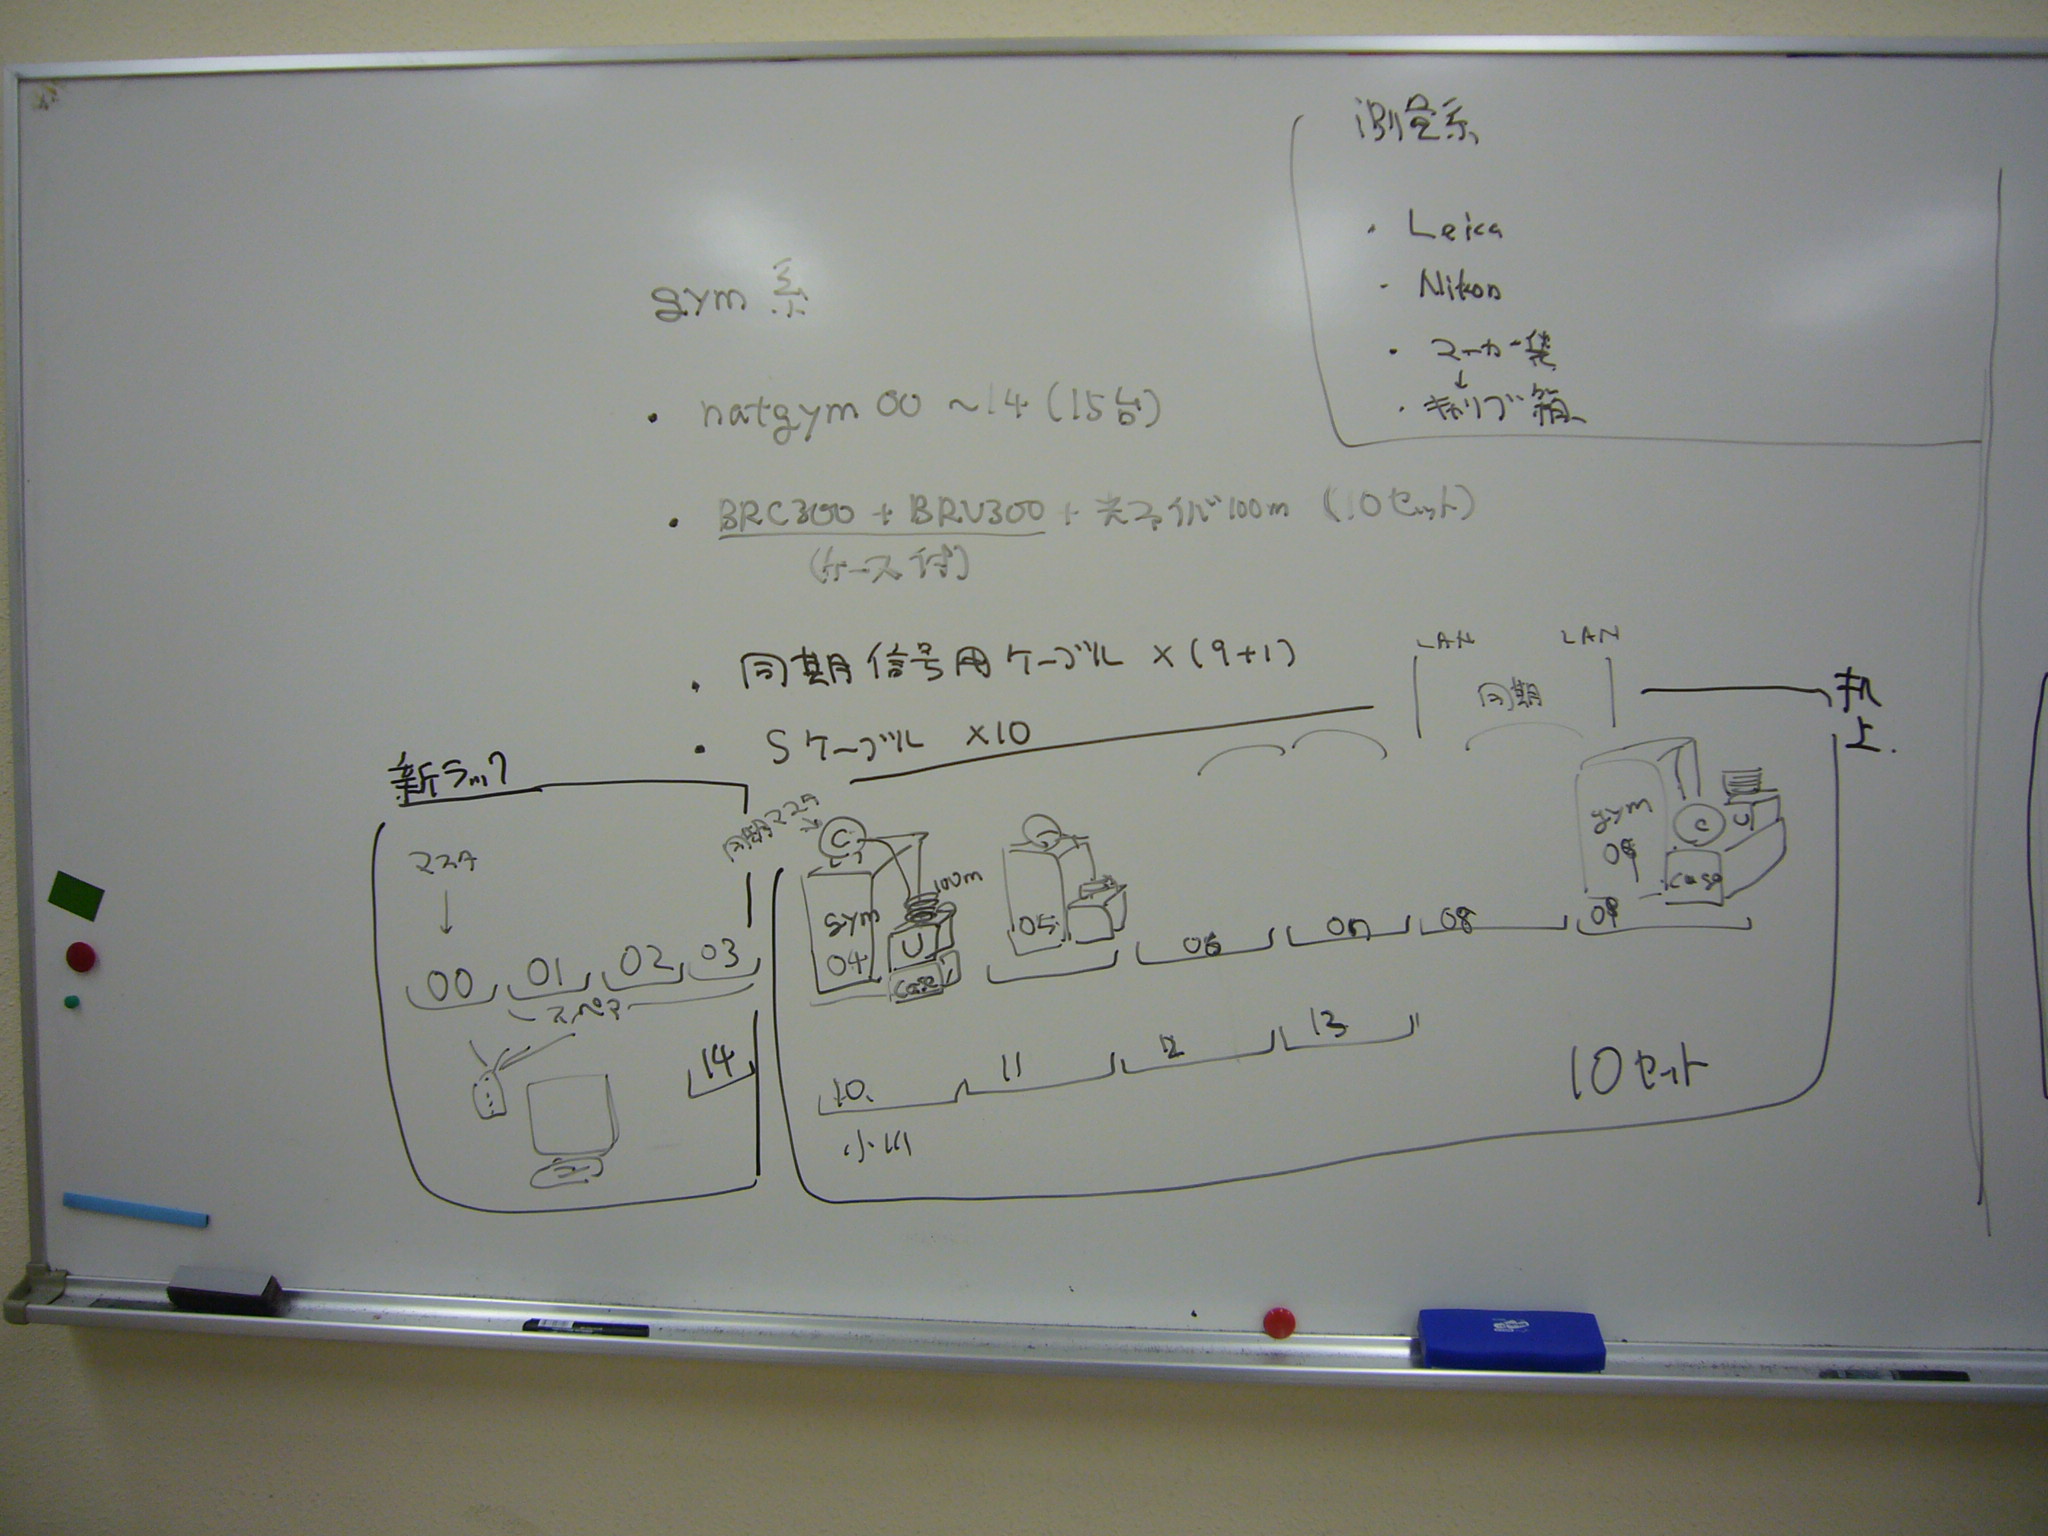 測量系
・ Leica
・ Nikon
・ マーカー
↓
・ キャリブ箱
gym系
・ natgym 00 ~14 (15台)
・ BRC300 + BRU300 + 光ファイバ 100m (10セット)
(ケース付)
・ 同期信号用ケーブル ×(9+1)
・ Sケーブル ×10
LAN
LAN
同期
机上.
新ラック
マスタ
↓
00 01 02 03
スペア
14
同期マスタ
C
100m
gym
04
U
case
05
06
07
08
gym
09
C
U
case
09
10.
11
12
13
10セット